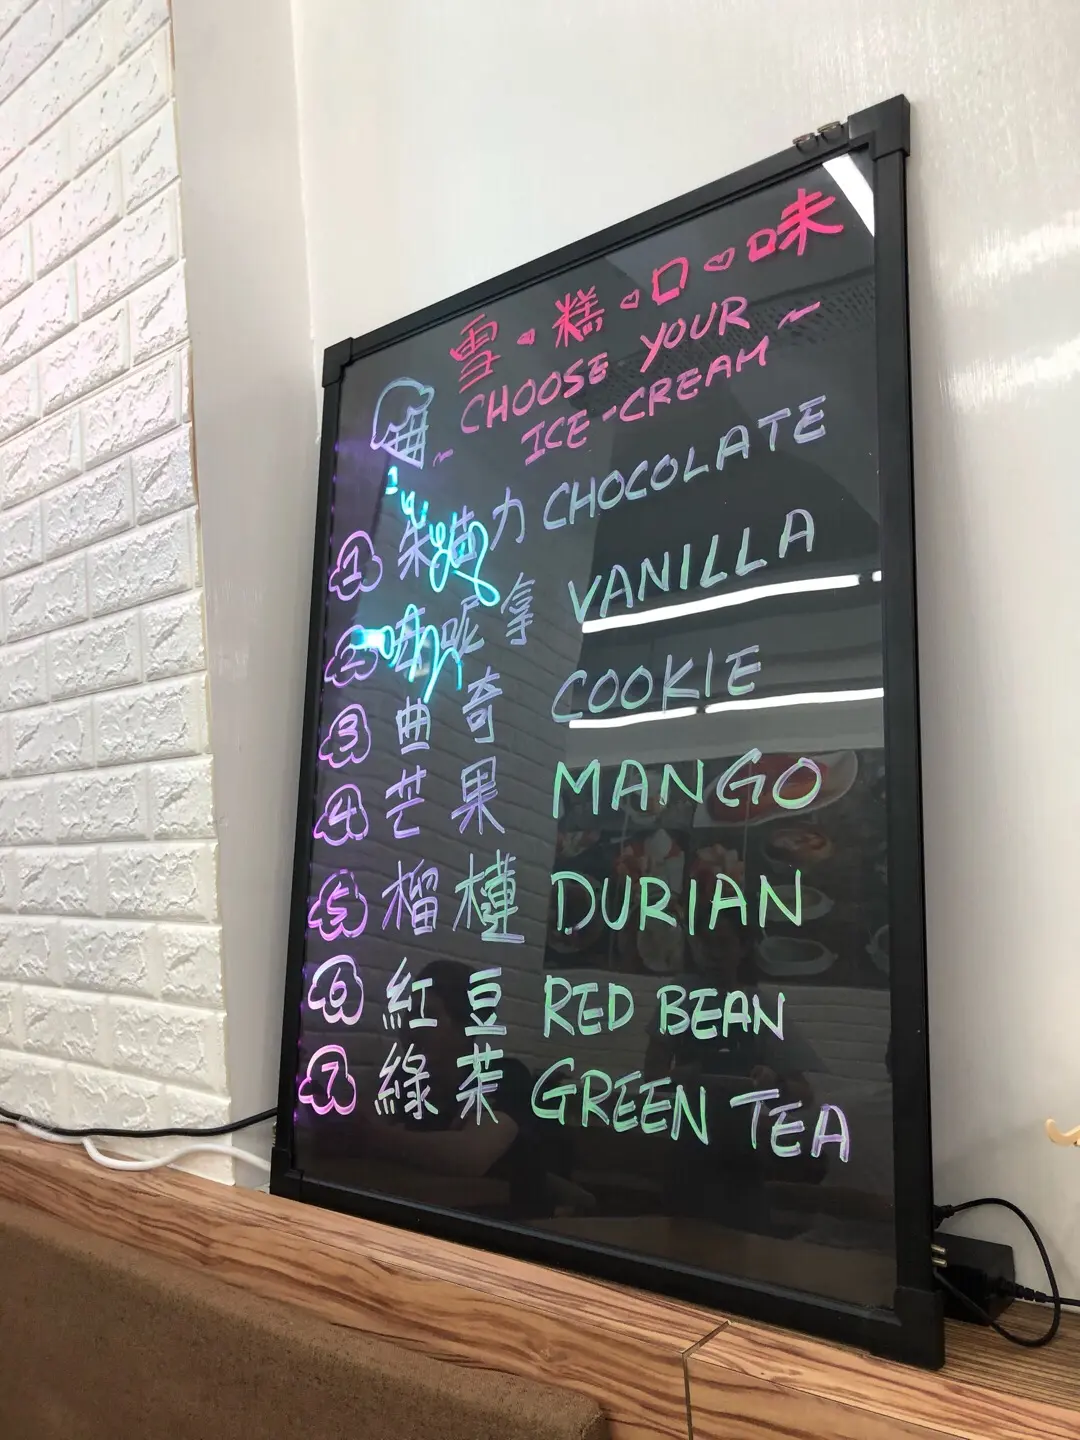 雪糕口味
CHOOSE YOUR
ICE-CREAM
1 朱咕力 CHOCOLATE
2 呍呢拿 VANILLA
3 曲奇 COOKIE
4 芒果 MANGO
5 榴槤 DURIAN
6 紅豆 RED BEAN
7 綠茶 GREEN TEA